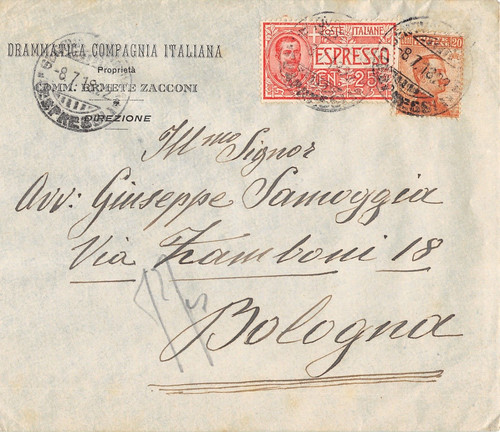 DRAMMATICA COMPAGNIA ITALIANA
Proprietà
COMM. ERMETE ZACCONI
DIREZIONE
POSTE ITALIANE
ESPRESSO
CENT. 25
20
8.7.16
ESPRESSI
8.7.16
Ill.mo Signor
Avv: Giuseppe Samoggia
Via Zamboni 18
Bologna